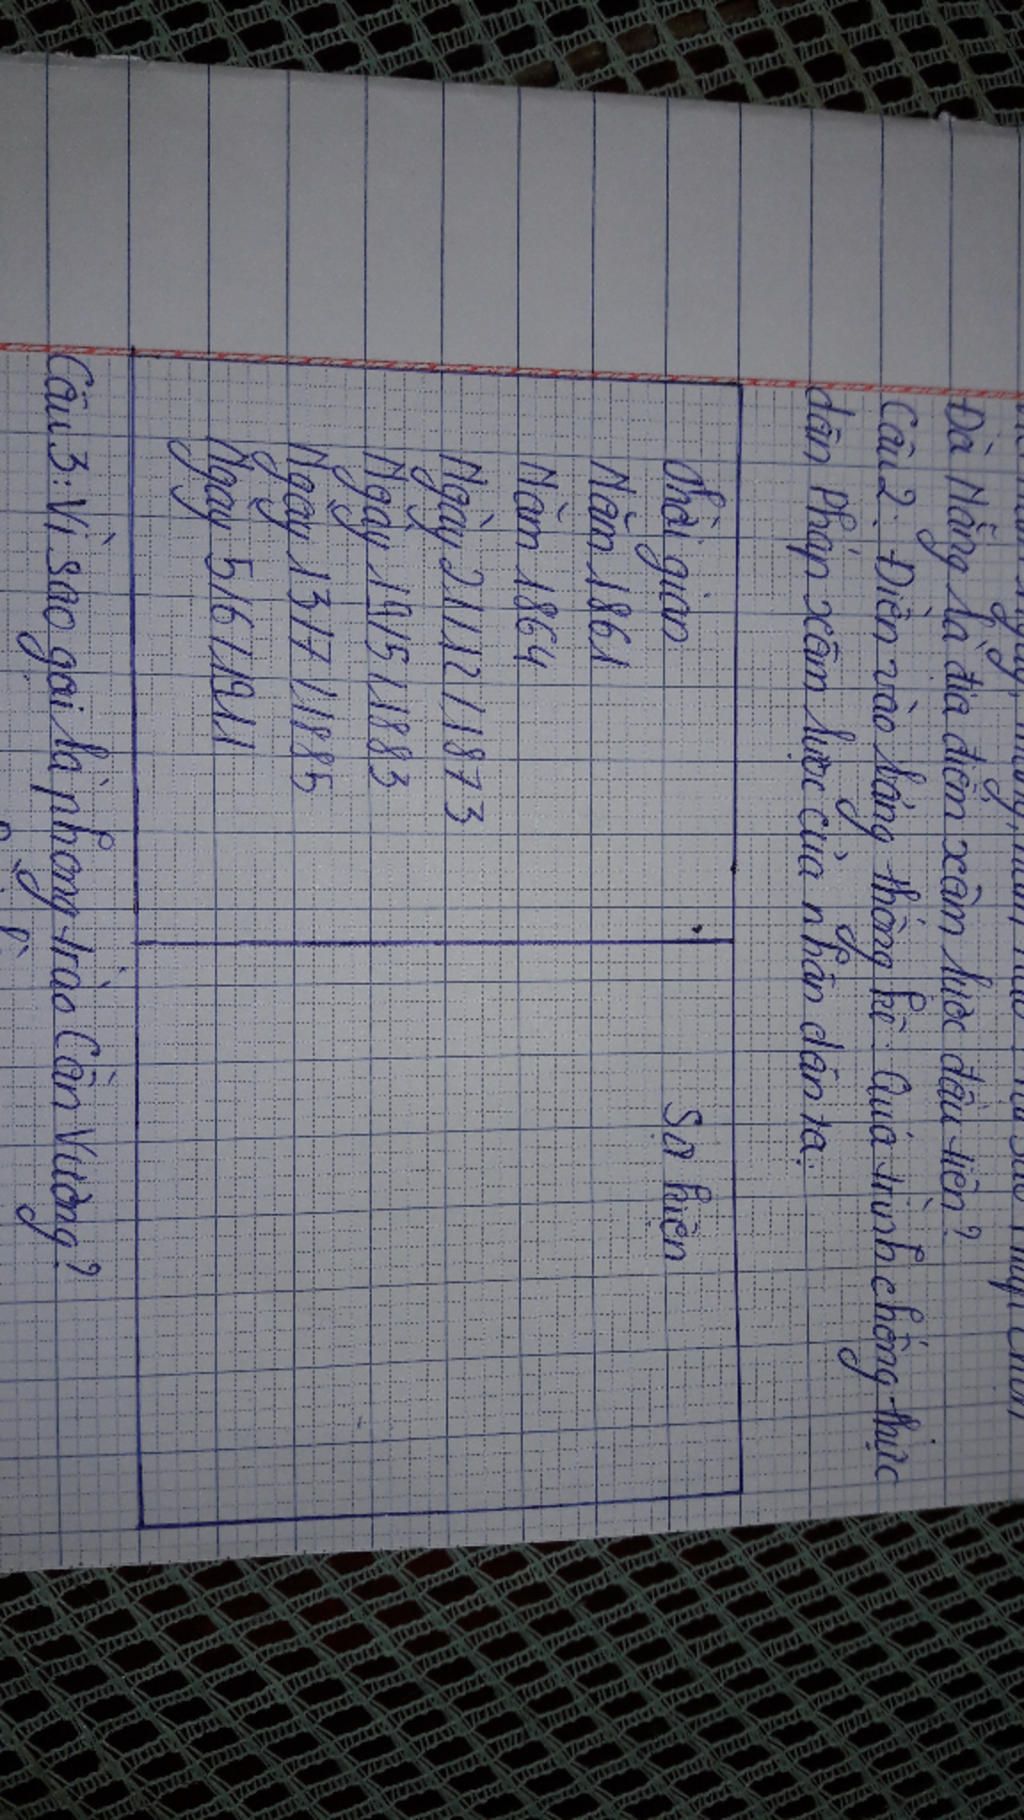 Đà Nẵng là địa điểm xâm lược đầu tiên?
Câu 2: Điền vào bảng thống kê: Quá trình chống thực
dân Pháp xâm lược của nhân dân ta.
Thời gian Sự kiện
Năm 1861
Năm 1864
Ngày 21/12/1873
Ngày 19/5/1883
Ngày 13/7/1885
Ngày 5/6/1911
Câu 3: Vì sao gọi là phong trào Cần Vương?